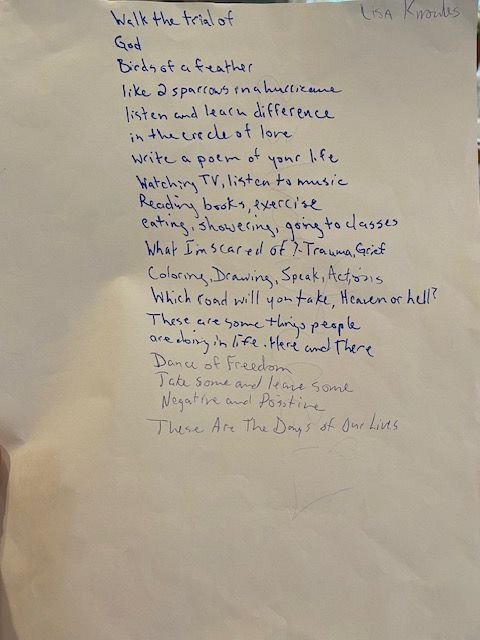 Lisa Knowles
Walk the trial of
God
Birds of a feather
like 2 sparrows in a hurricane
listen and learn difference
in the circle of love
write a poem of your life
Watching TV, listen to music
Reading books, exercise
eating, showering, going to classes
What I'm scared of? Trauma, Grief
Coloring, Drawing, Speak, Actions
Which road will you take, Heaven or hell?
These are some things people
are doing in life. Here and There
Dance of Freedom
Take some and leave some
Negative and Posstive
These Are The Days of Our Lives